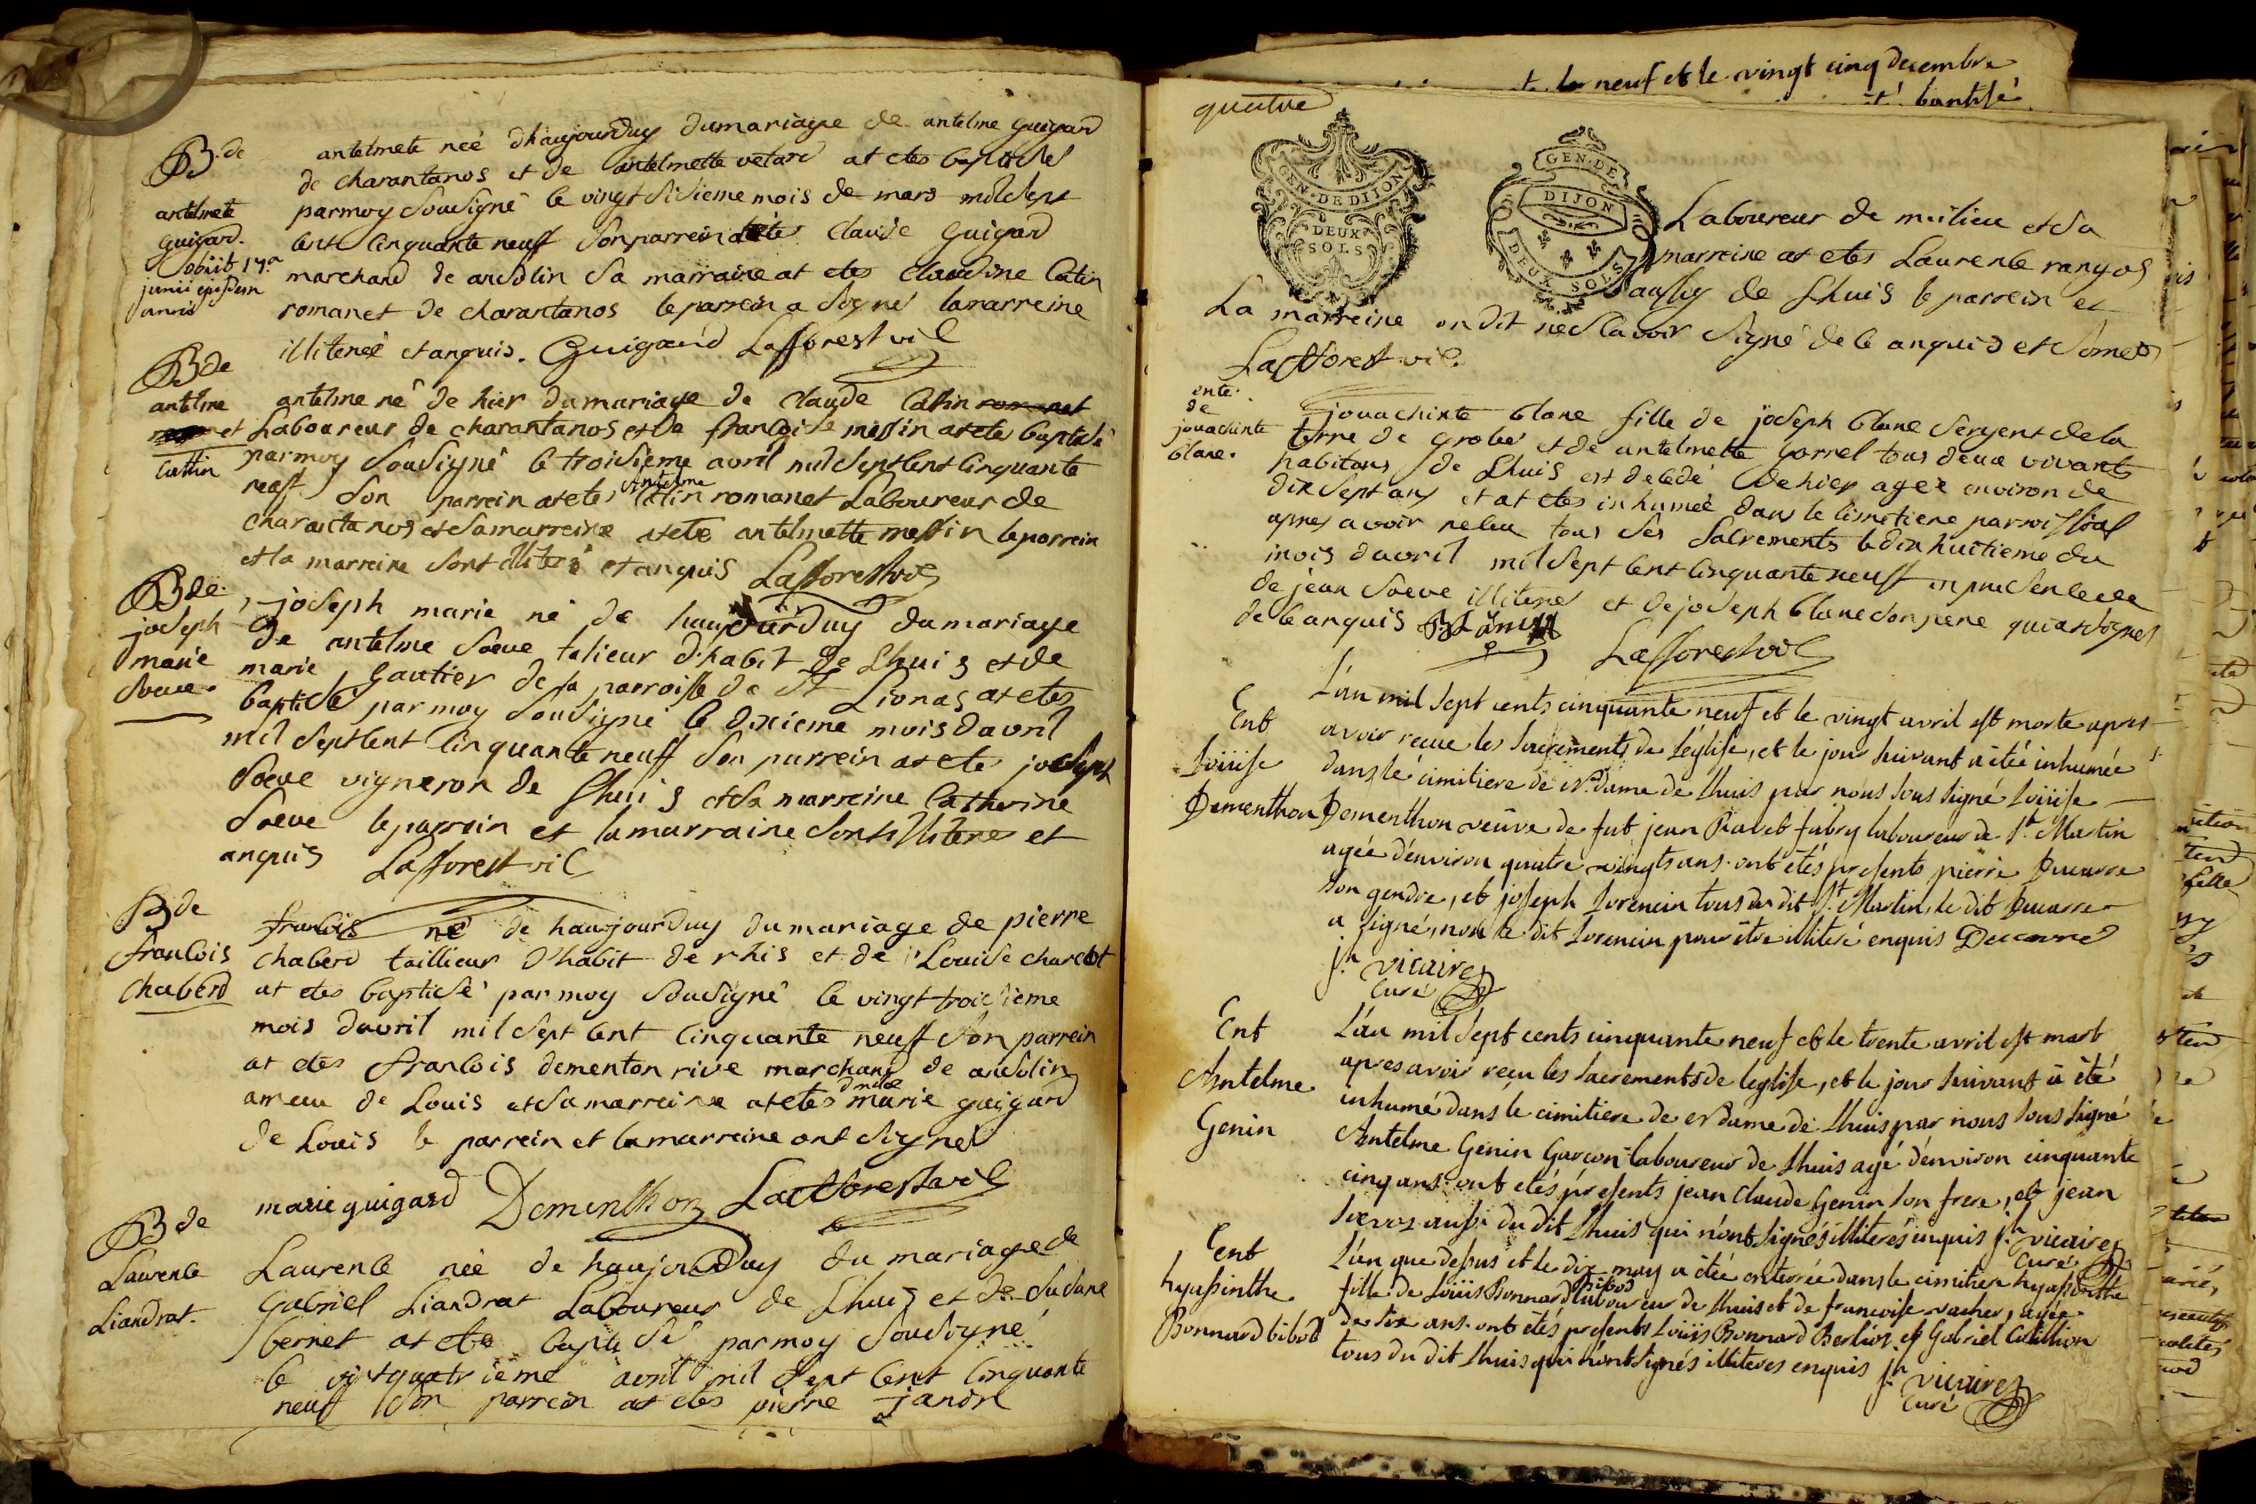 B. de
antelmete
guigard.
obiit 17.a
junii ejusdem
anni
antelmete neé dhaujourduy dumariage de antelme guigard
de charantanos et de antelmette vetard at etes baptisés
parmoy sousigné le vingt sisieme mois de mars mil sept
cent cinquante neuff son parrein at étés claude guigard
marchand de ansolin sa marraine at etes claudine catin
romanet de charantanos le parrein a signé la marreine
illiterée et anquis. Guigard Lafforest vic
B de
antelme
et
Cattin
antelme né de hier dumariage de claude Catin romanet
Laboureur de charantanos et de francoise messin at ete baptisé
parmoy sousigné le troisieme avril mil sept cent cinquante
neuff son parrein at etes antelme Catin romanet Laboureur de
charantanos et sa marreine at ete antelmette messin le parrein
et la marreine sont illiteré et anquis Lafforest vic
B de
joseph
marie
soeve.
joseph marie né de haujourduy dumariage
de antelme soeve talieur d'habit de Lhuis et de
marie gautier de la parroisse de St Lionas at etes
baptisé par moy sousigné le dixieme mois d'avril
mil sept cent cinquante neuff son parrein at ete joseph
soeve vigneron de Lhuis et sa marreine Catherine
soeve le parrein et la marraine sont illiteres et
anquis Lafforest vic
B de
francois
chaberd
francois né de haujourduy du mariage de pierre
chaberd taillieur d'habit de rhis et de Louise charcot
at etes baptisé par moy sousigné le vingt troisieme
mois davril mil sept cent cinquante neuff son parrein
at etes francois dementon rive marchand de ansolin
ameau de Louis et sa marreine at etes dmlle marie guigard
de Louis le parrein et la marreine ont signés
marie guigard Dementhon Lafforest vic
B de
Laurence
Liandrat.
Laurence neé de haujourduy du mariage de
gabriel Liandrat Laboureur de Lhuis et de susane
bernet at ete baptisé par moy sousigné
le vint quatrieme avril mil sept cent cinquante
neuff son parrein at etes pierre
quatre
GEN. DE DIJON
DEUX
SOLS
GEN. DE
DIJON
DEUX SOLS
Laboureur de milieu et sa
marreine at etes Laurence
aussy de Lhuis le parrein et
La marreine on dit ne scavoir signé de ce anquis et
Lafforest vic.
ente.
de
jouachinte
blanc.
jouachinte blanc fille de joseph blanc sergent de la
terre de grolee et de antelmette gorrel tous deux vivants
habitans de Lhuis est decedé de hier ageé environ de
dix sept ans et at etes inhumeé dans le cimetiere parroissial
apres avoir receu tous ses sacrements le dix huitieme du
mois davril mil sept cent cinquante neuff en presence de
de jean soeve illiteré et de joseph blanc son pere qui at signés
de ce anquis
Lafforest vic
Ent
Loüise
Dementhon
L'an mil sept cents cinquante neuf et le vingt avril est morte apres
avoir recue les sacrements de l'église, et le jour suivant a étée inhumée
dans le cimitiere de N. dame de Lhuis par nous sous signé Loüise
Dementhon veuve de fut jean fabry laboureur de St. Martin
agée d'environ quatre vingts ans. ont étés presents pierre Ducarre
son gendre, et joseph Lorencin tous du dit St. Martin, le dit Ducarre
a signé, non le dit Lorencin pour être illiteré enquis Ducarre
jh. vicaire
curé
Ent
Antelme
Genin
L'an mil sept cents cinquante neuf et le trente avril est mort
apres avoir reçu les sacrements de l'eglise, et le jour suivant a été
inhumé dans le cimitiere de N. dame de Lhuis par nous sous signé
Antelme Genin Garçon laboureur de Lhuis agé d'environ cinquante
cinq ans. ont étés presents jean Claude Genin son frere, et jean
aussi du dit Lhuis qui n'ont signés illiterés enquis jh. vicaire
curé
Ent
hyassinthe
Bonnard bibod
L'an que dessus et le dix may a étée enterrée dans le cimitiere hyassinthe
fille de Loüis Bonnard bibod laboureur de Lhuis et de francoise vacher, agée
de six ans. ont étés presents Loüis Bonnard Berlioz et Gabriel
tous du dit Lhuis qui n'ont signés illiteres enquis jh. vicaire
curé
le neuf et le vingt cinq decembre